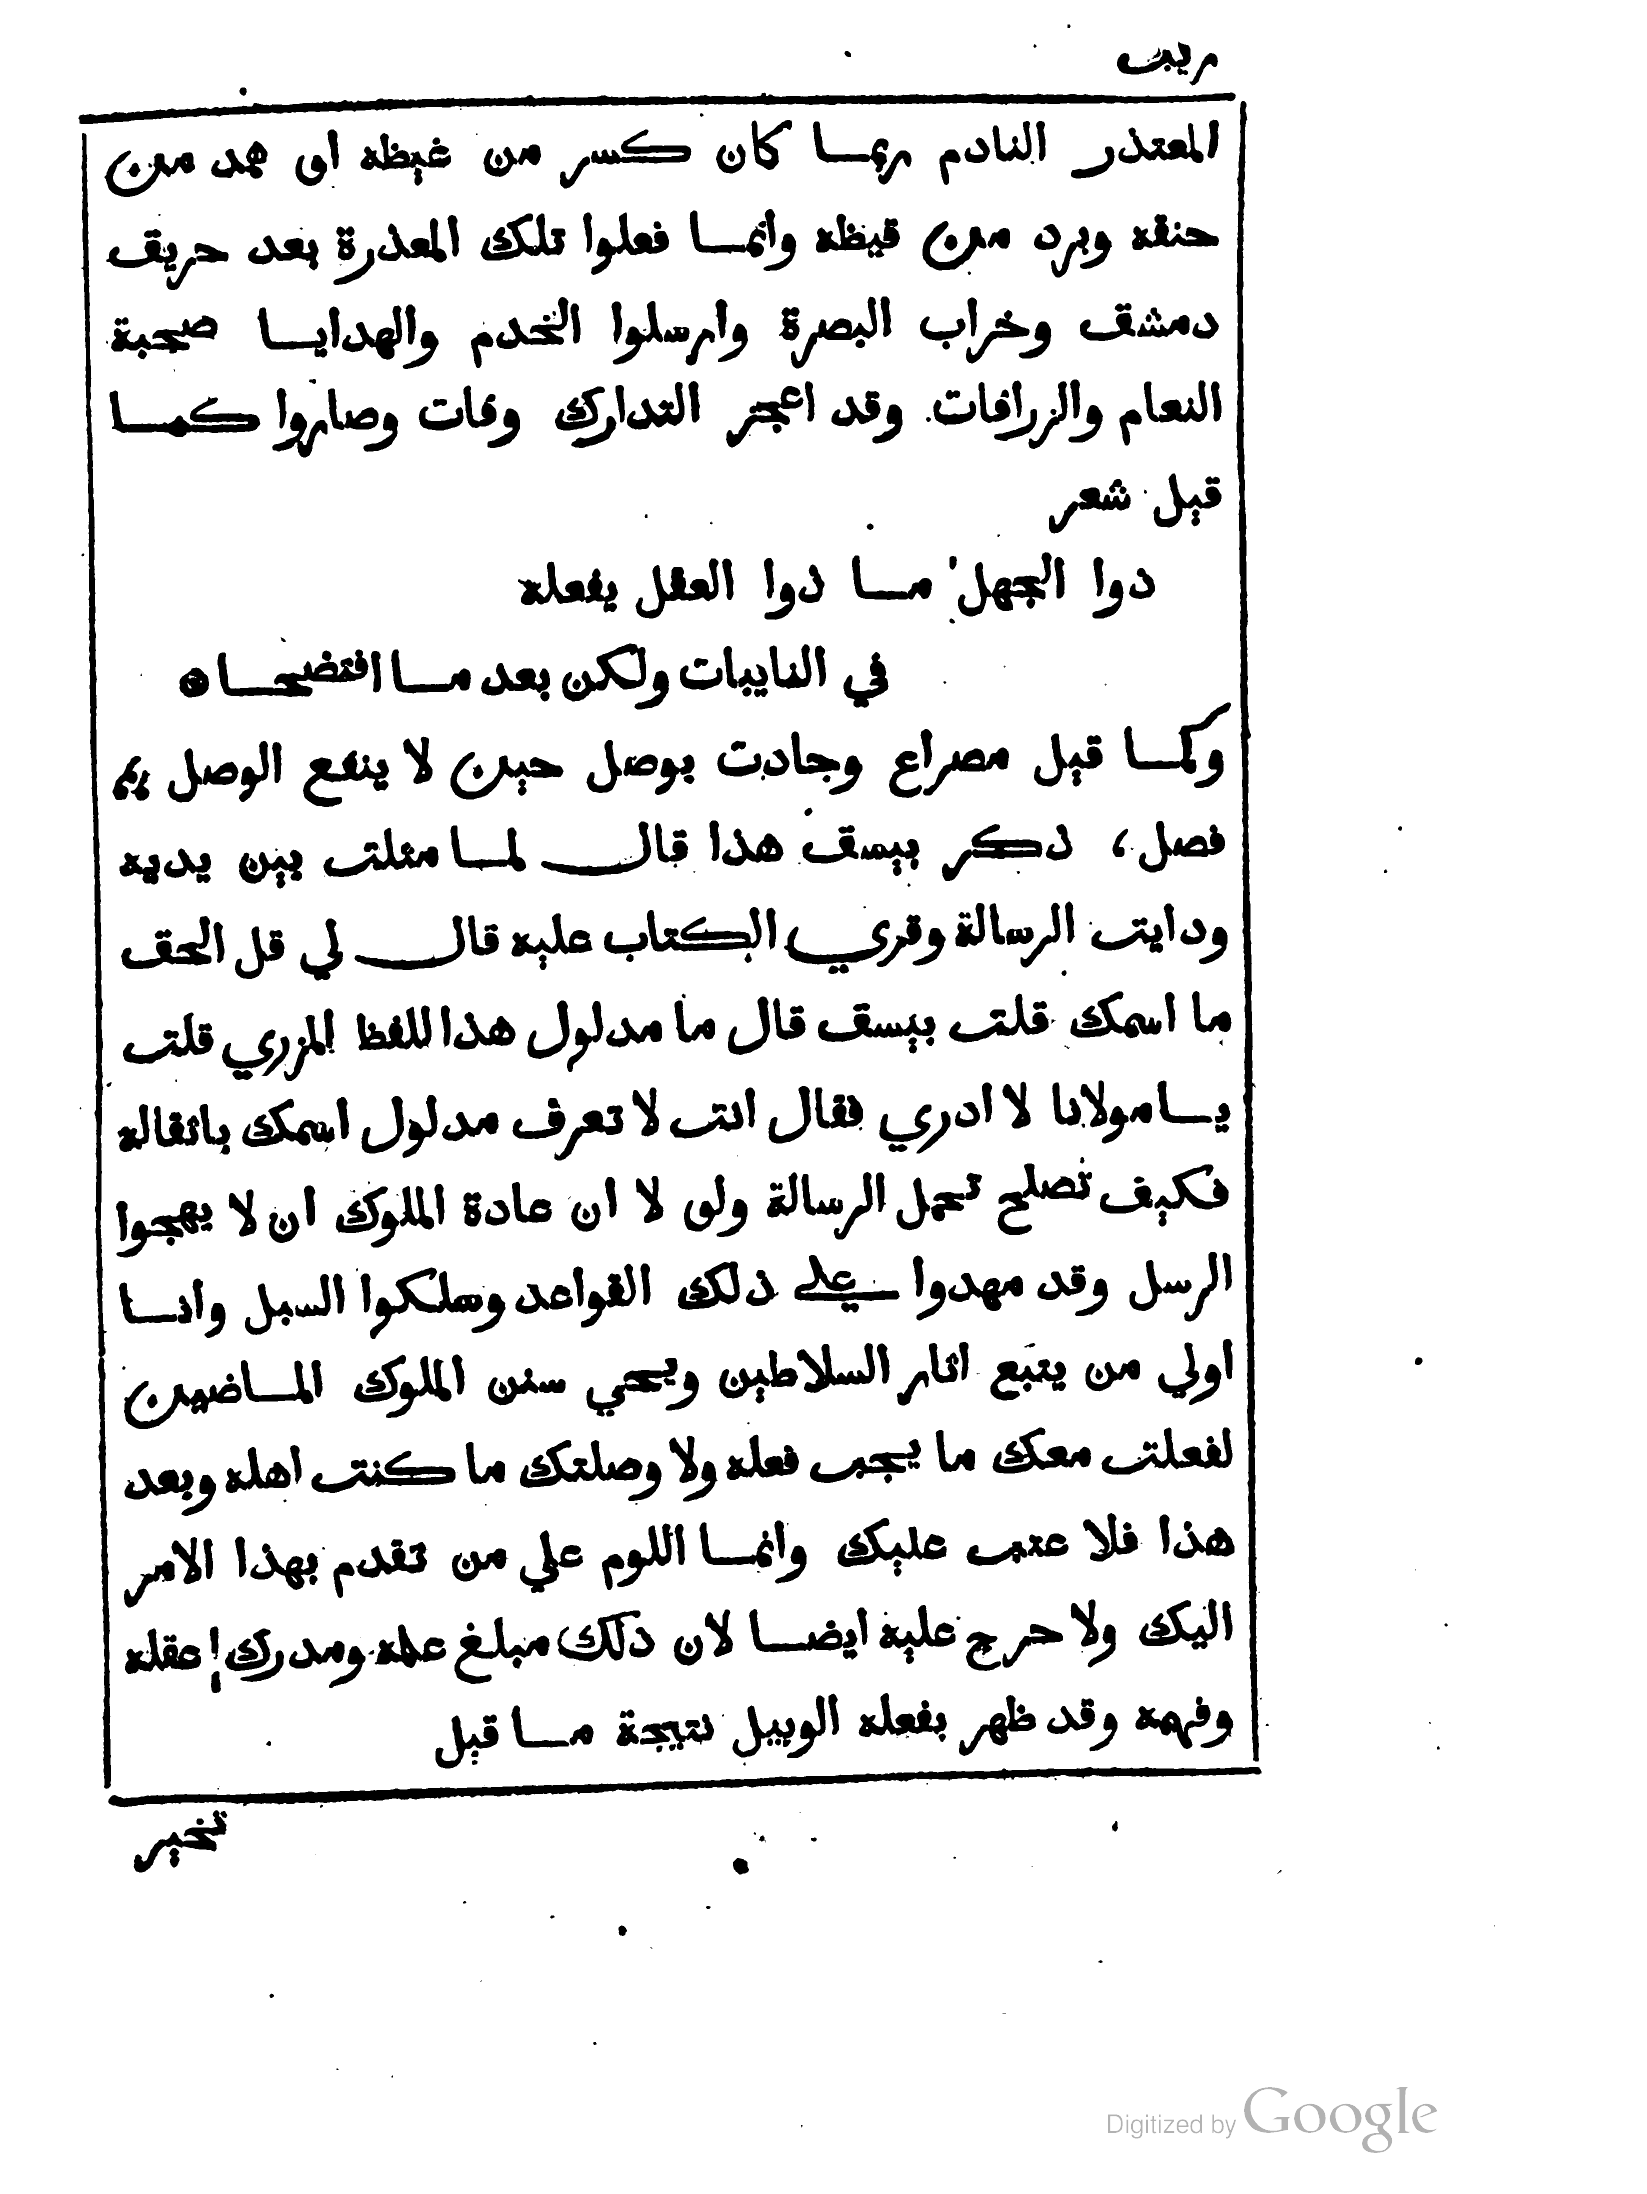 ريب
المعتذر النادم ربما كان كسر من غيظه او همد من
حنقه وبرد من قيظه وانما فعلوا تلك المعذرة بعد حريق
دمشق وخراب البصرة وارسلوا الخدم والهدايا صحبة
النعام والزرافات وقد اعجز التدارك وفات وصاروا كما
قيل شعر
ذوا الجهل ما ذوا العقل يفعله
في النايبات ولكن بعد ما افتضحا
وكما قيل مصراع وجادت بوصل حين لا ينفع الوصل
فصل، ذكر بيسق هذا قال لما مثلت بين يديه
ودايت الرسالة وقري الكتاب عليه قال لي قل الحق
ما اسمك قلت بيسق قال ما مدلول هذا للفظ المزري قلت
يا مولانا لا ادري فقال انت لا تعرف مدلول اسمك باثقاله
فكيف تصلح تحمل الرسالة ولو لا ان عادة الملوك ان لا يهجوا
الرسل وقد مهدوا علي ذلك القواعد وسلكوا السبل وانا
اولي من يتبع اثار السلاطين ويحيي سنن الملوك الماضين
لفعلت معك ما يجب فعله ولا وصلتك ما كنت اهله وبعد
هذا فلا عتب عليك وانما اللوم علي من تقدم بهذا الامر
اليك ولا حرج عليه ايضا لان ذلك مبلغ علمه ومدرك عقله
وفهمه وقد ظهر بفعله الوبيل نتيجة ما قيل
تخير
Digitized by Google